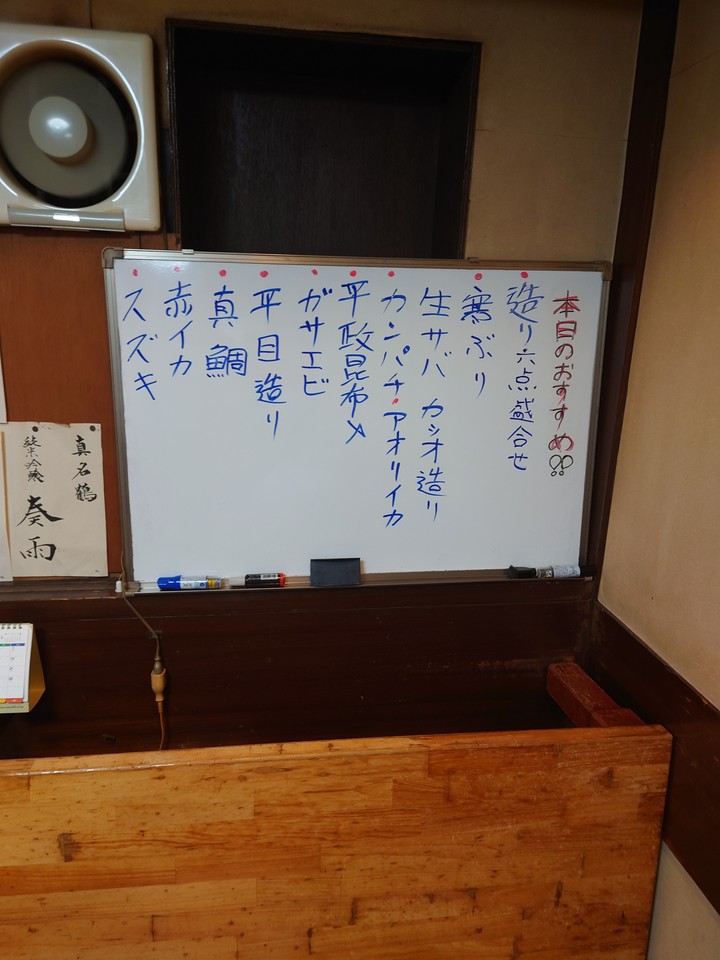 本日のおすすめ!!
・造り六点盛合せ
・寒ぶり
生サバ カツオ造り
・カンパチ・アオリイカ
・平政昆布〆
・ガサエビ
・平目造り
・真鯛
・赤イカ
・スズキ
真名鶴
純米吟醸
奏雨